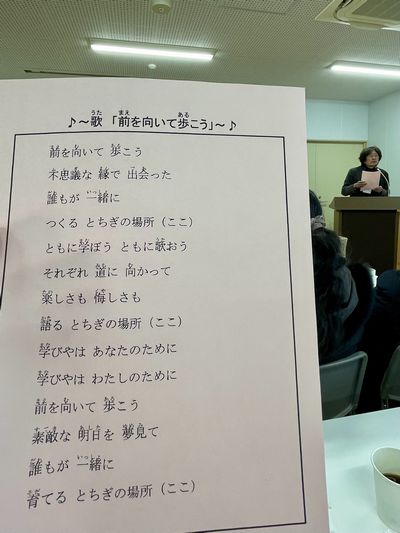 ♪～歌「前を向いて歩こう」～♪
前を向いて 歩こう
不思議な 縁で 出会った
誰もが 一緒に
つくる とちぎの場所（ここ）
ともに学ぼう ともに歌おう
それぞれ 道に 向かって
楽しさも 悔しさも
語る とちぎの場所（ここ）
学びやは あなたのために
学びやは わたしのために
前を向いて 歩こう
素敵な 明日を 夢見て
誰もが 一緒に
育てる とちぎの場所（ここ）